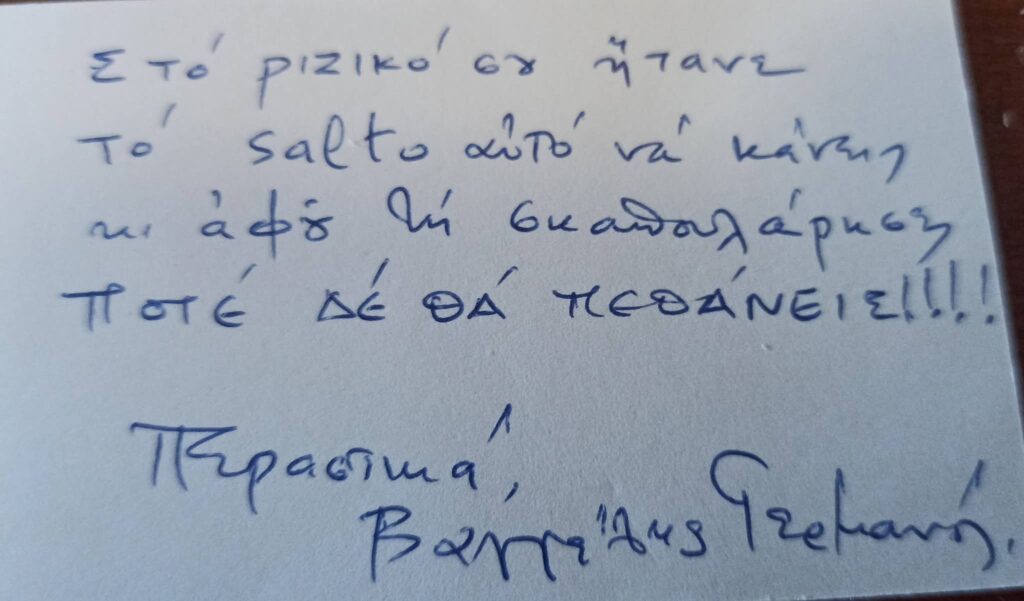 Στό ριζικό σου ἤτανε
τό salto αὐτό νά κάνεις
κι ἀφοῦ τή σκαπουλάρησες
ΠΟΤΕ ΔΕ ΘΑ ΠΕΘΑΝΕΙΣ!!!!
Περαστικά,
Βαγγέλης Γερμανός.